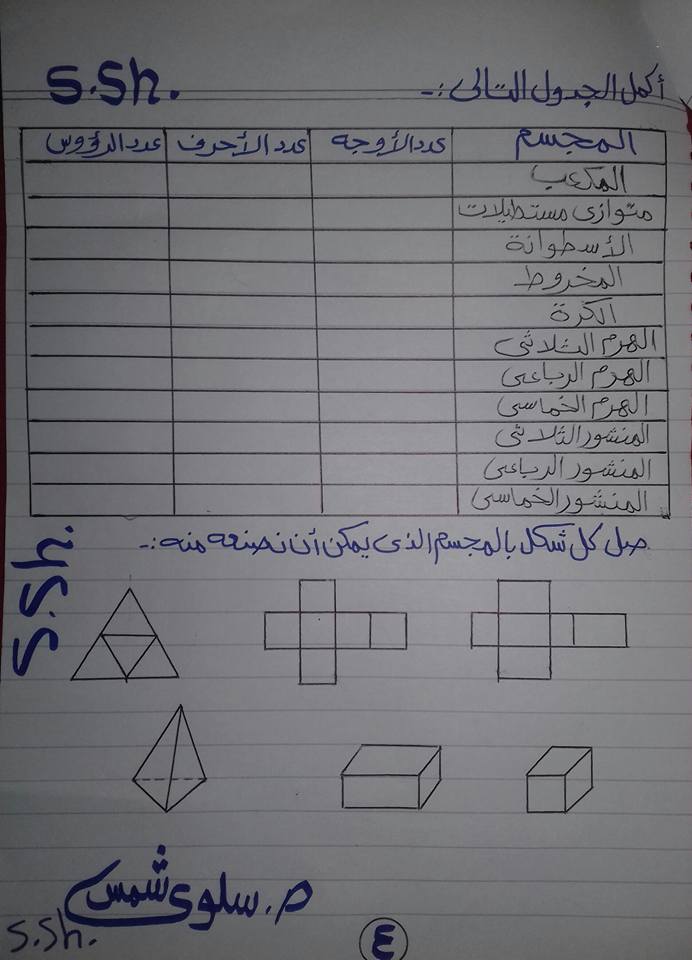 أكمل الجدول التالى :-
S.Sh.
المجسم عدد الأوجه عدد الأحرف عدد الرؤوس
المكعب
متوازى مستطيلات
الأسطوانة
المخروط
الكرة
الهرم الثلاثى
الهرم الرباعى
الهرم الخماسى
المنشور الثلاثى
المنشور الرباعى
المنشور الخماسى
صل كل شكل بالمجسم الذى يمكن أن نصنعه منه :-
S.Sh.
م. سلوى شمس
S.Sh.
٤